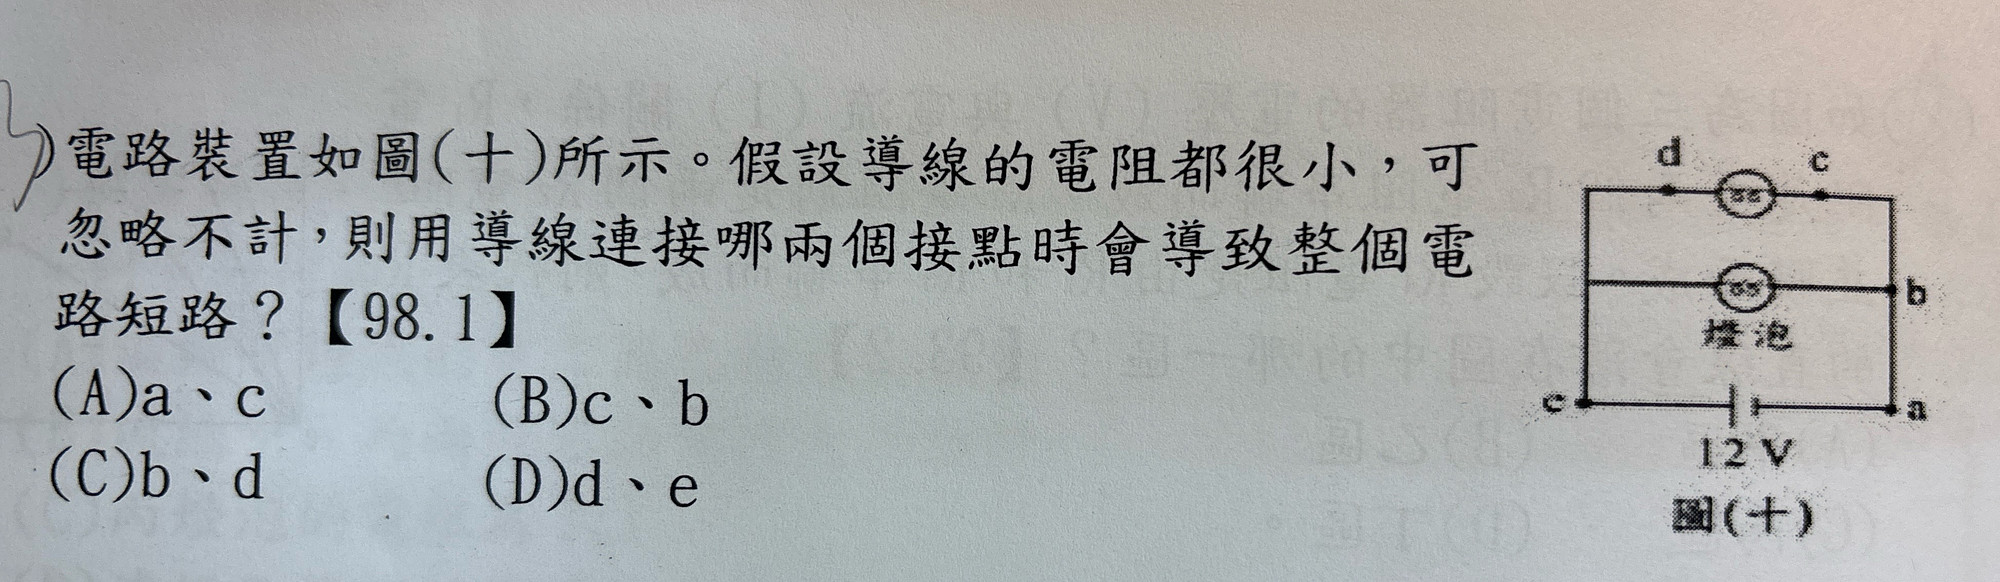 )電路裝置如圖(十)所示。假設導線的電阻都很小,可
忽略不計,則用導線連接哪兩個接點時會導致整個電
路短路?【98.1】
(A)a、c (B)c、b
(C)b、d (D)d、e
d c
b
燈泡
e a
12 V
圖(十)